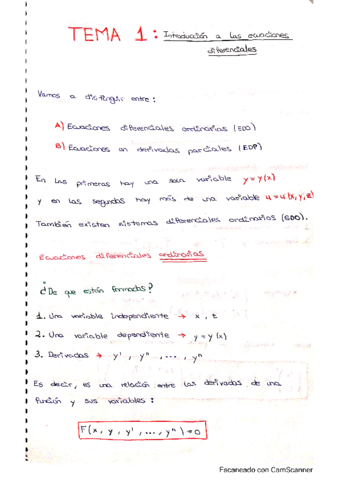 TEMA 1: Introducción a las ecuaciones
diferenciales
Vamos a distinguir entre:
A) Ecuaciones diferenciales ordinarias (EDO)
B) Ecuaciones en derivadas parciales (EDP)
En las primeras hay una sola variable y=y(x)
y en las segundas hay más de una variable u=u(x,y,z)
También existen sistemas diferenciales ordinarios (SDO).
Ecuaciones diferenciales ordinarias
¿De que están formadas?
1. Una variable independiente → x, t
2. Una variable dependiente → y=y(x)
3. Derivadas → y', y'', ..., yⁿ
Es decir, es una relación entre las derivadas de una
función y sus variables:
F(x, y, y', ..., yⁿ)=0
Escaneado con CamScanner